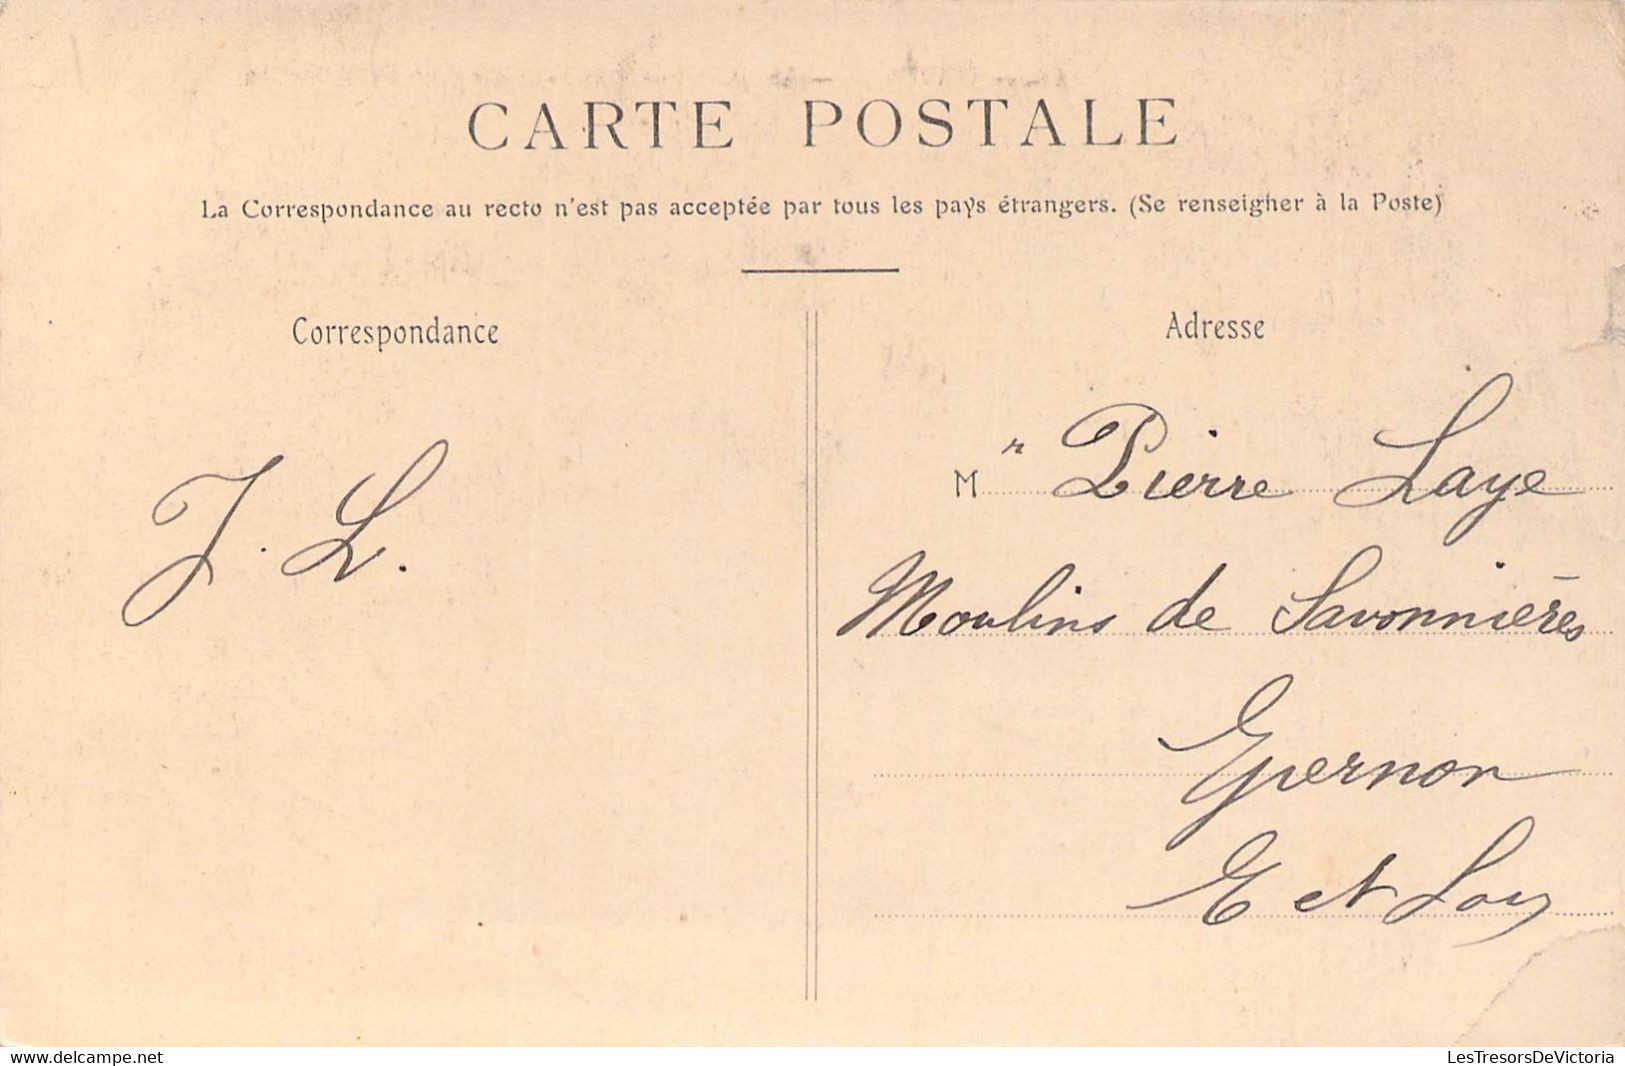 CARTE POSTALE
La Correspondance au recto n'est pas acceptée par tous les pays étrangers. (Se renseigner à la Poste)
Correspondance
J. L.
Adresse
Mr Pierre Laye
Moulins de Savonnières
Epernon
E et Loir
www.delcampe.net
LesTresorsDeVictoria